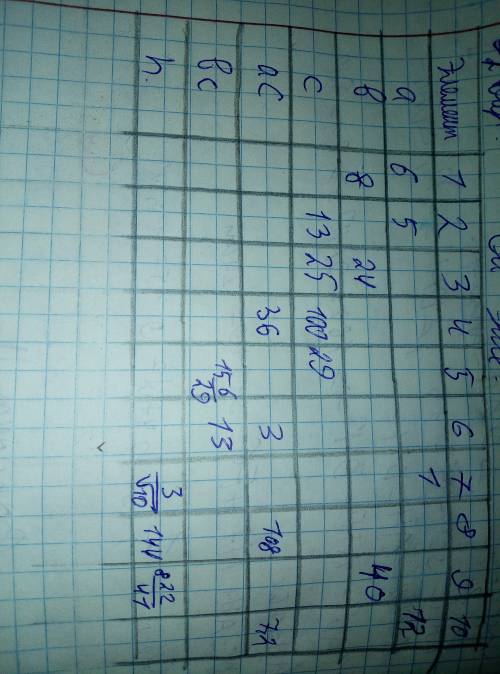 Элемент 1 2 3 4 5 6 7 8 9 10
a 6 5 1 12
b 8 24 40
c 13 25 100 29
ac 36 3 108
bc 15 6/29 13
h. 3/√10 144 8 22/41